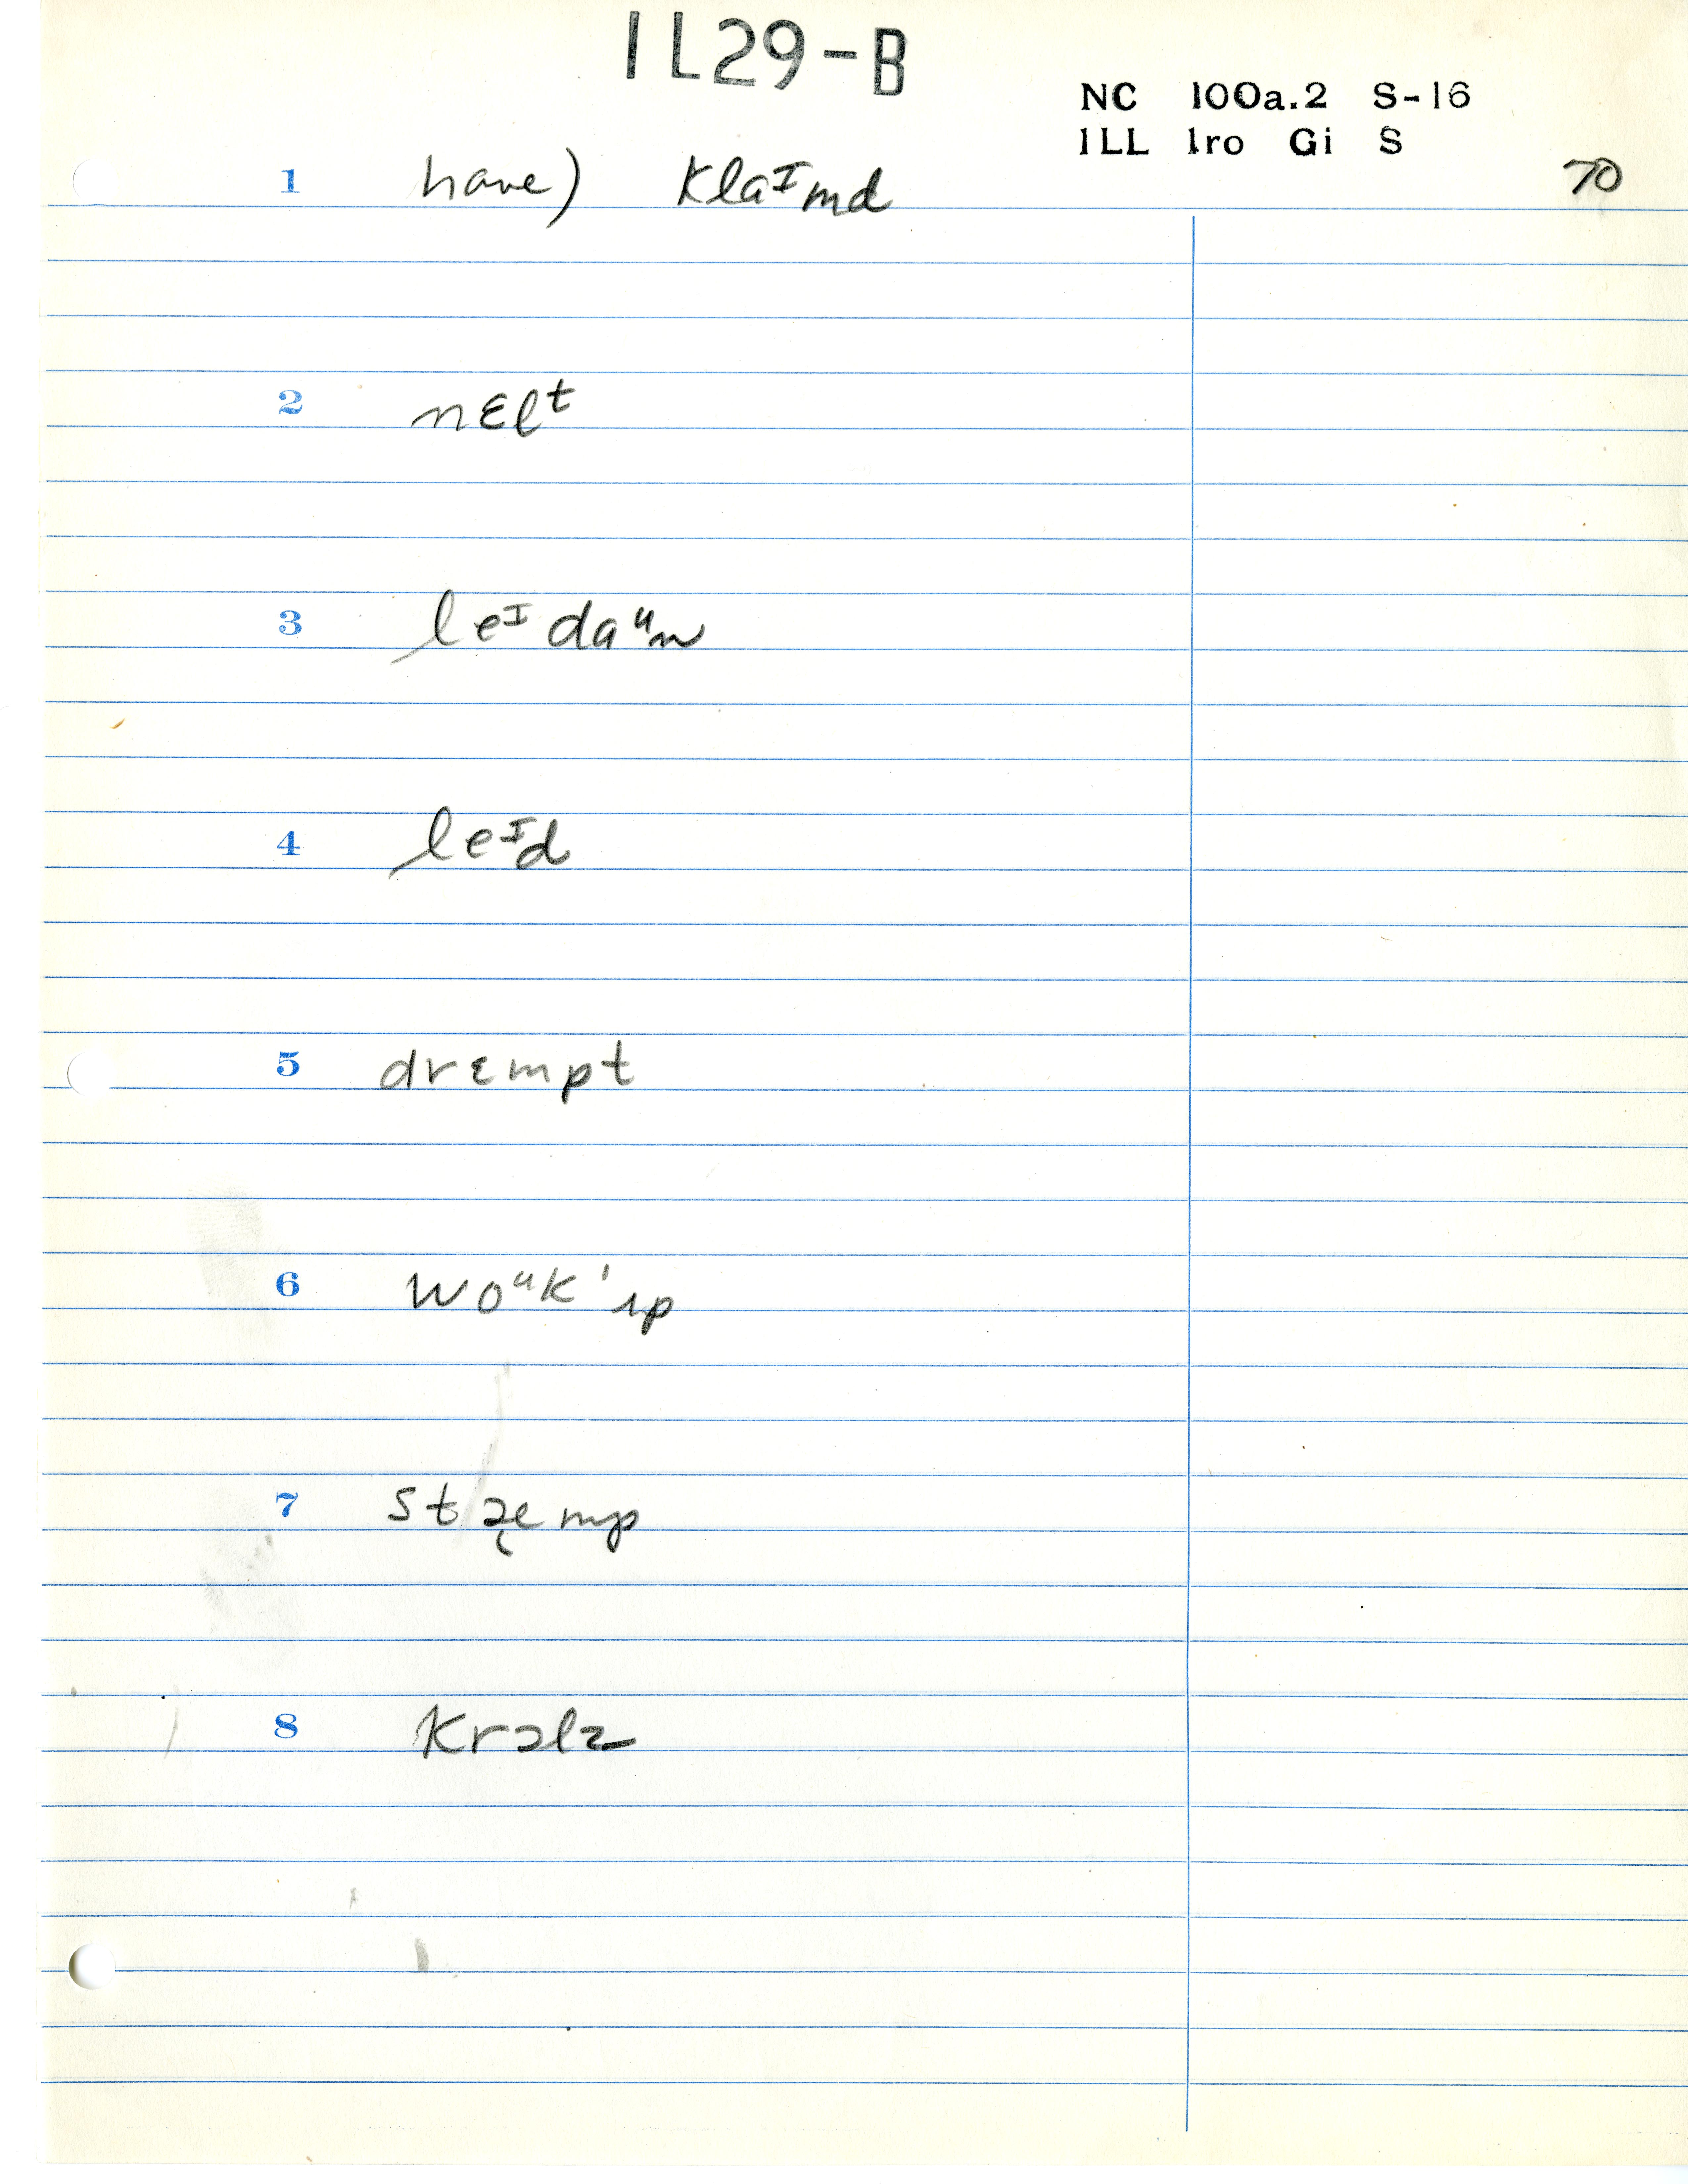 IL29-B
NC 100a.2 S-16
ILL Iro Gi S
70
1 have) klaᴵmd
2 nɛlᵗ
3 leᴵ daᵘn
4 leᴵd
5 drɛmpt
6 woᵘk 'ɪp
7 stæ̨mp
8 krɔlz